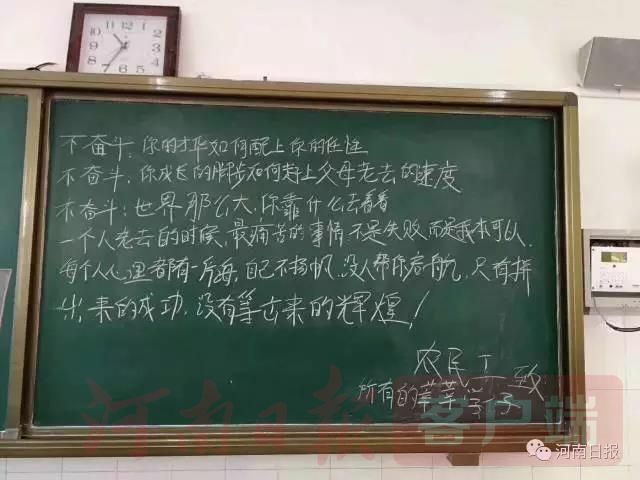 不奋斗，你的才华如何配上你的任性
不奋斗，你成长的脚步如何赶上父母老去的速度
不奋斗：世界那么大，你靠什么去看看
一个人老去的时候，最痛苦的事情不是失败而是我本可以，
每个人心理都有一片海，自己不扬帆，没人帮你启航，只有拼
出来的成功，没有等出来的辉煌！
农民工致
所有的莘莘学子
河南日报 客户端
河南日报